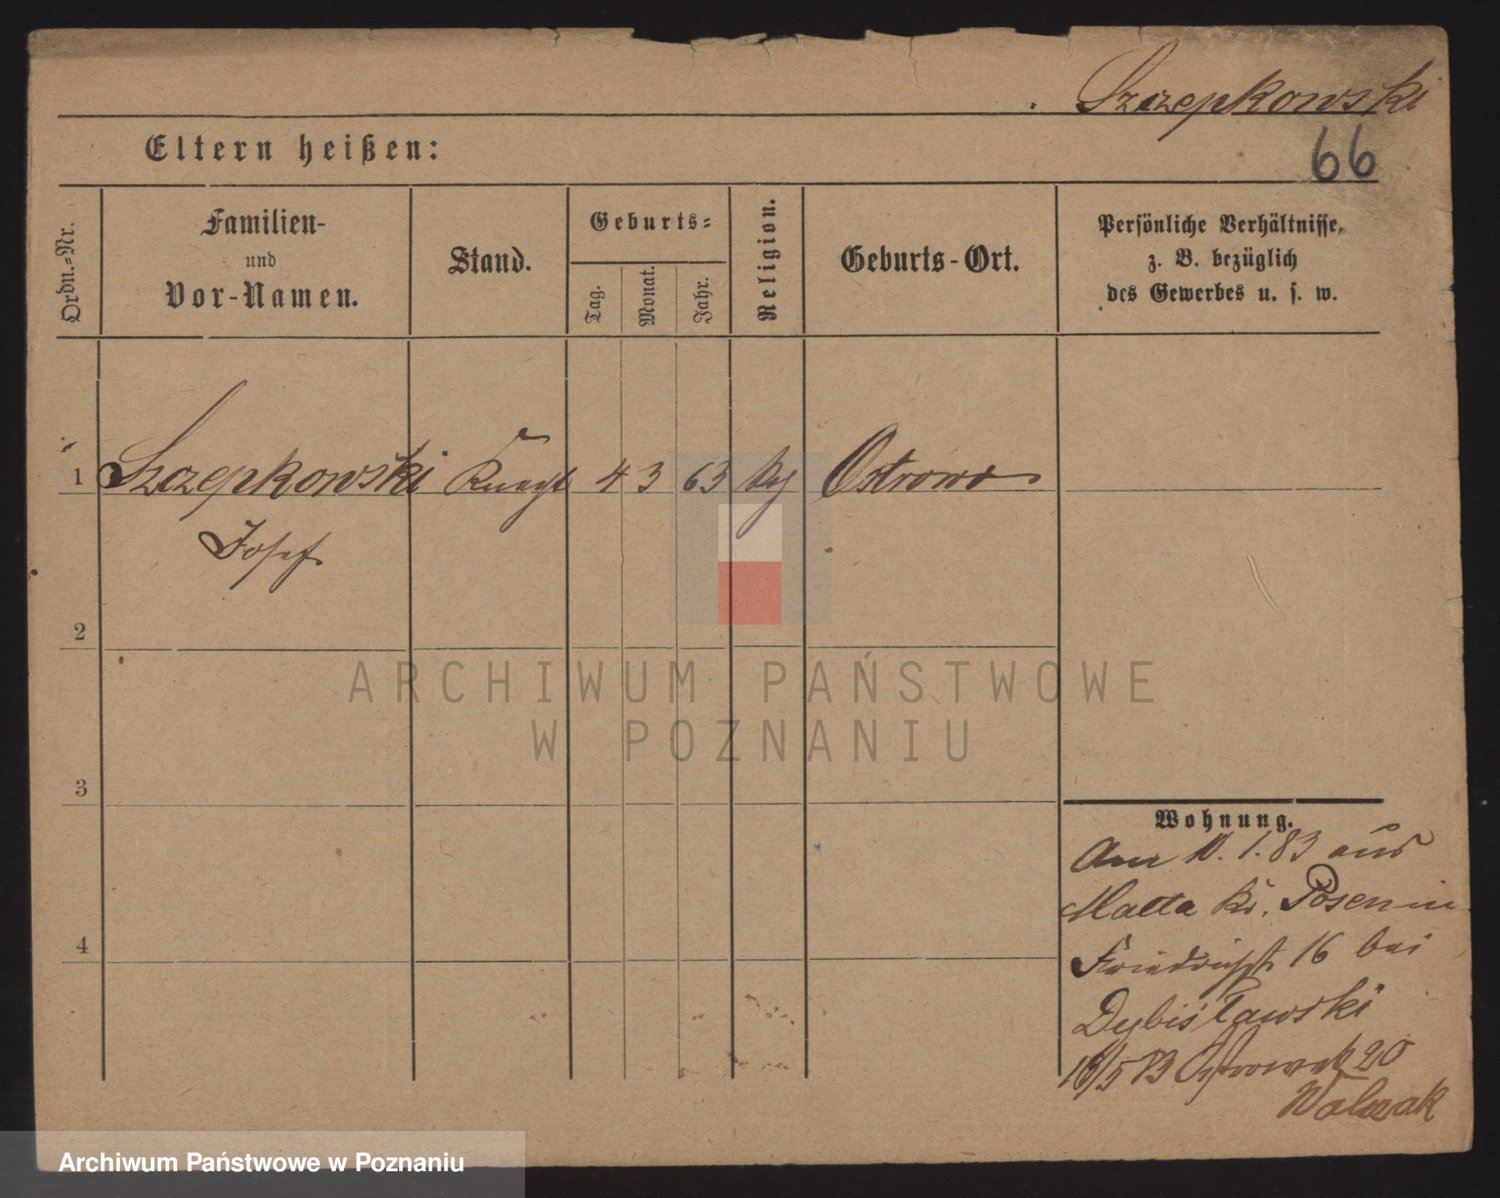 Szczepkowski
66
Eltern heißen:
Ordn.-Nr.
Familien-
und
Vor-Namen.
Stand.
Geburts-
Tag.
Monat.
Jahr.
Religion.
Geburts-Ort.
Persönliche Verhältnisse,
z. B. bezüglich
des Gewerbes u. s. w.
1 Szczepkowski Knecht 4 3 63 Ostrowo
Josef
2
ARCHIWUM PAŃSTWOWE
W POZNANIU
3
Wohnung.
Am 11.1.83 aus
Malta Kr. Posen in
4
Friedrichst. 16 bei
Dybisławski
18/5 83 20
Walczak
Archiwum Państwowe w Poznaniu